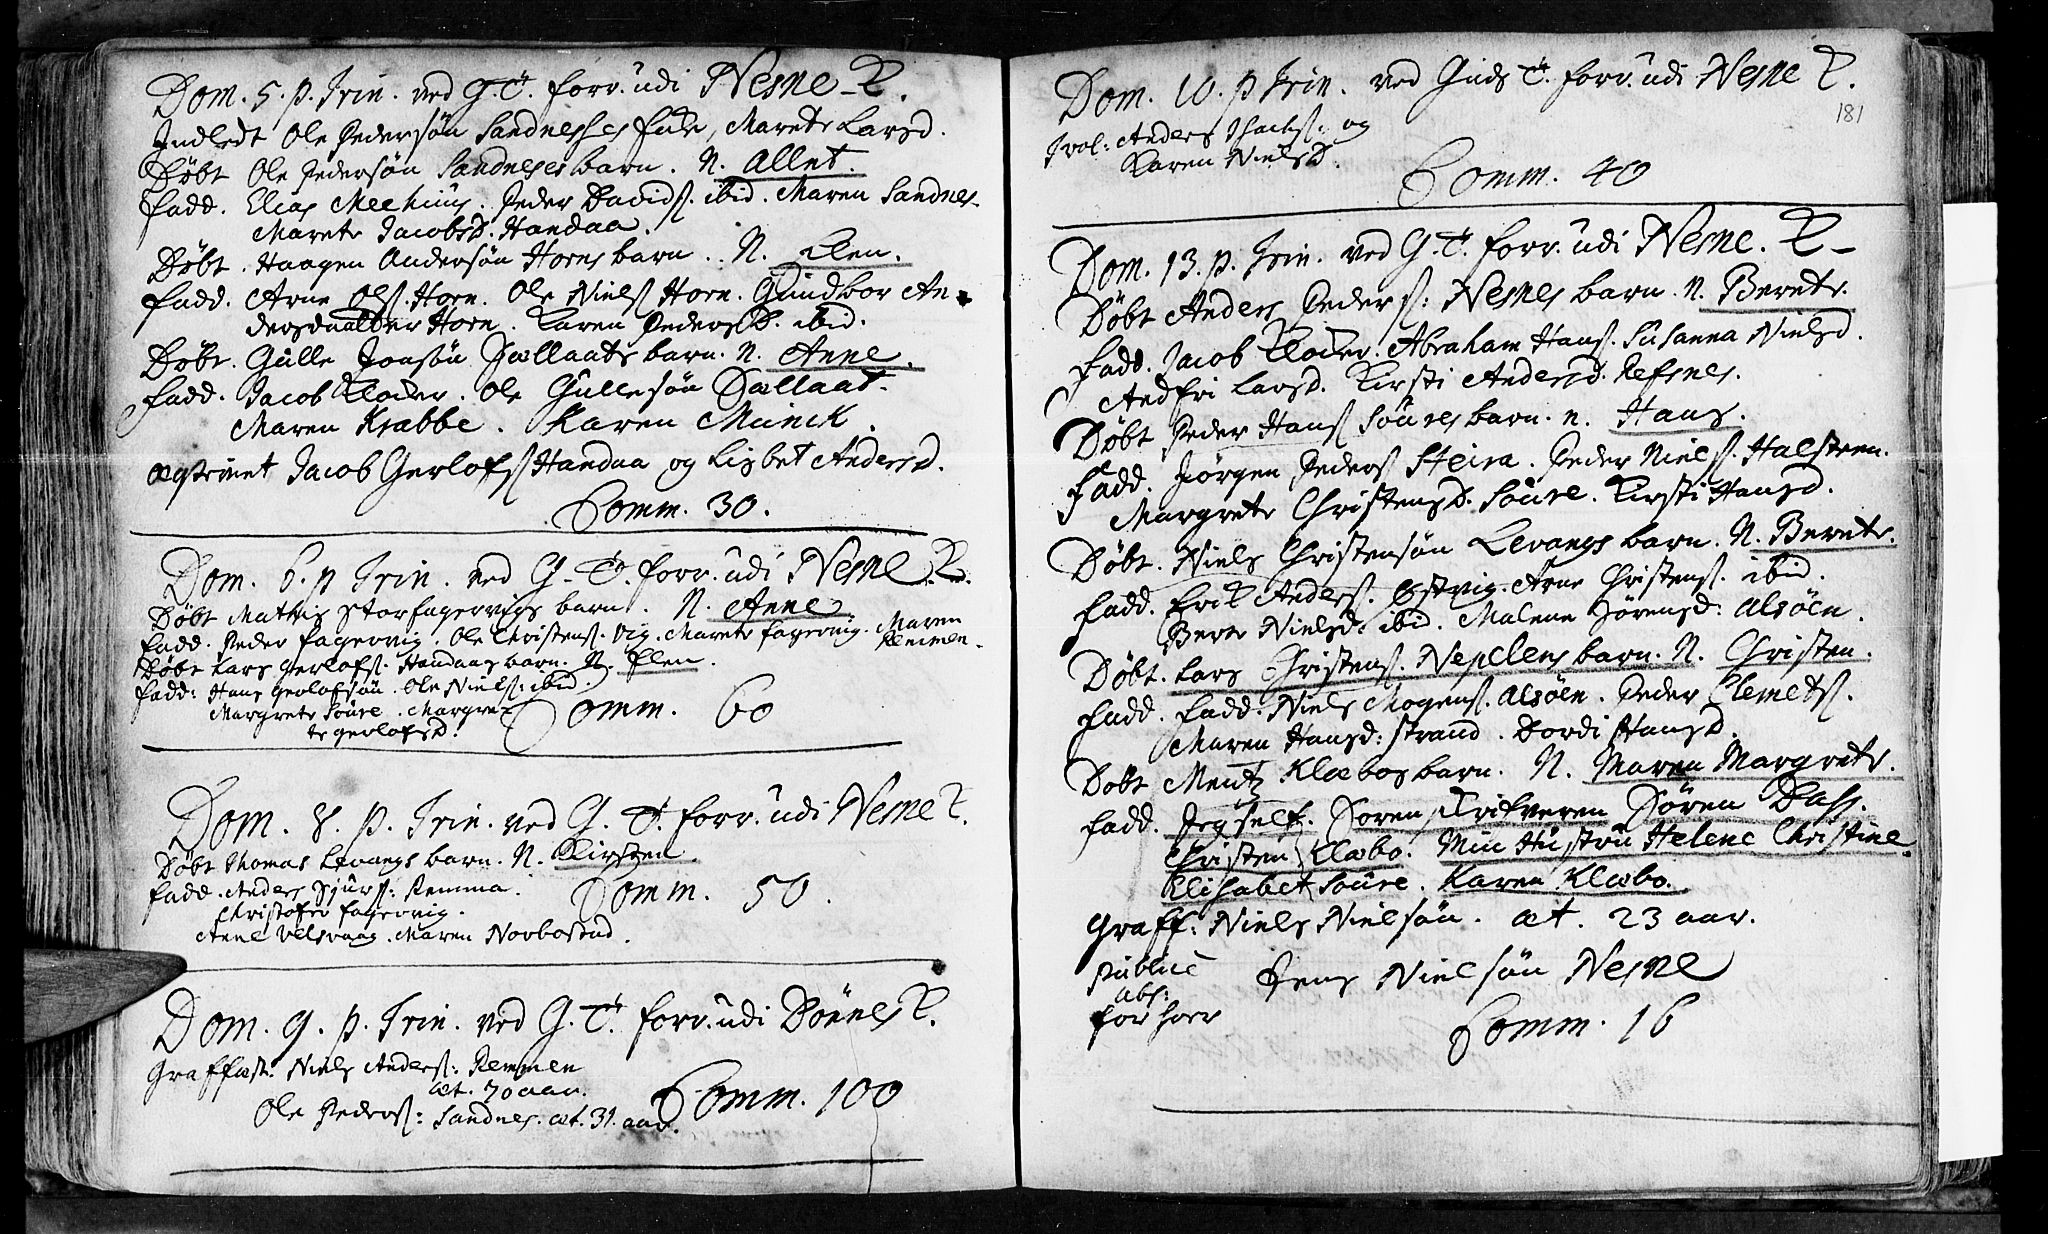 Dom. 5. p. Trin. ved G. T. forr. udi Nesne K.
Indledt Ole Pedersøn Sandnesses fale, Marete Larsd.
Døbt Ole Pedersøn Sandneses barn. N. Allet.
fadd. Elias Mechius. Peder Davids. ibid. Maren Sandnes.
Marete Jacobsd. Handaa.
Døbt. Haagen Andersøn Horns barn. N. Elen.
fadd. Arne Ols. Horn. Ole Niels Horn. Gundbor An-
dersdaatter Horn. Karen Pedersd. ibid.
Døbt. Gulle Jonsøn Sællaats barn. N. Anne.
fadd. Jacob Klocker. Ole Gullesøn Sællaat.
Maren Krabbe. Karen Munck.
ægtviet Jacob Gerlofs Handaa og Lisbet Andersd.
Comm. 30.
Dom. 6. p Trin. ved G. T. forr. udi Nesne K.
Døbt Mathis Storfagervigs barn. N. Anne
fadd. Peder fagervig. Ole Christens. Vig. Marete fagervig. Maren
Remmen.
Døbt Lars Gerlofs. Handaas barn. N. Elen.
fadd: Hans Gerlofsøn. Ole Niels: ibid.
Margrete Soure. Margre-
te gerlofsd.
Comm. 60
Dom. 8. p. Trin. ved G. T. forr. udi Nesne K.
Døbt Thomas Levangs barn. N. Kirsten.
fadd. Anders Sjurs: Remma.
Christofer fagervig.
Anne Velsvaag. Maren Norbostad.
Comm. 50.
Dom. 9. p. Trin. ved G. T. forr. udi Dønnes K.
Graffæst. Niels Anders: Remmen
æt. 70 aar.
Ole Peders: Sandnes. æt. 31. aar.
Comm. 100
Dom. 10. p Trin. ved Guds T. forr. udi Nesne K.
181
Trol: Anders Isachs: og
Karen Nielsd.
Comm. 40
Dom. 13. p. Trin. ved G. T. forr. udi Nesne. K-
Døbt Anders Peders: Nesnes barn. N. Berete.
fadd. Jacob Klocker. Abraham Hans. Susanna Nielsd.
Andfri Larsd. Kirsti Andersd. Refsnes.
Døbt Peder Hans Soures barn. N. Hans.
fadd. Jørgen Peders Steira. Peder Niels. Halsteen.
Margrete Christensd. Soure. Kirsti Hansd.
Døbt. Niels Christensøn Levangs barn. N. Berete.
fadd. Erik Anders. Østvig. Arne Christens. ibid.
Berte Nielsd. ibid. Malene Sørensd: Alsøen.
Døbt. Lars Christens. Nepelens barn. N. Christen.
fadd. fadd. Niels Mogens. Alsøen. Peder Clemets.
Maren Hansd: Strand. Dordi Hansd.
Døbt Mentz Klæbos barn. N. Maren Margrete.
fadd. Jeg self. Soren Søren Dass.
Christen Klæbo. Min Hustru Helene Christine.
Elisabet Soure. Karen Klæbo.
Graff: Niels Nielsøn. æt. 23 aar.
Publice
abs:
for hoer
Jens Nielsøn Nesne
Comm. 16